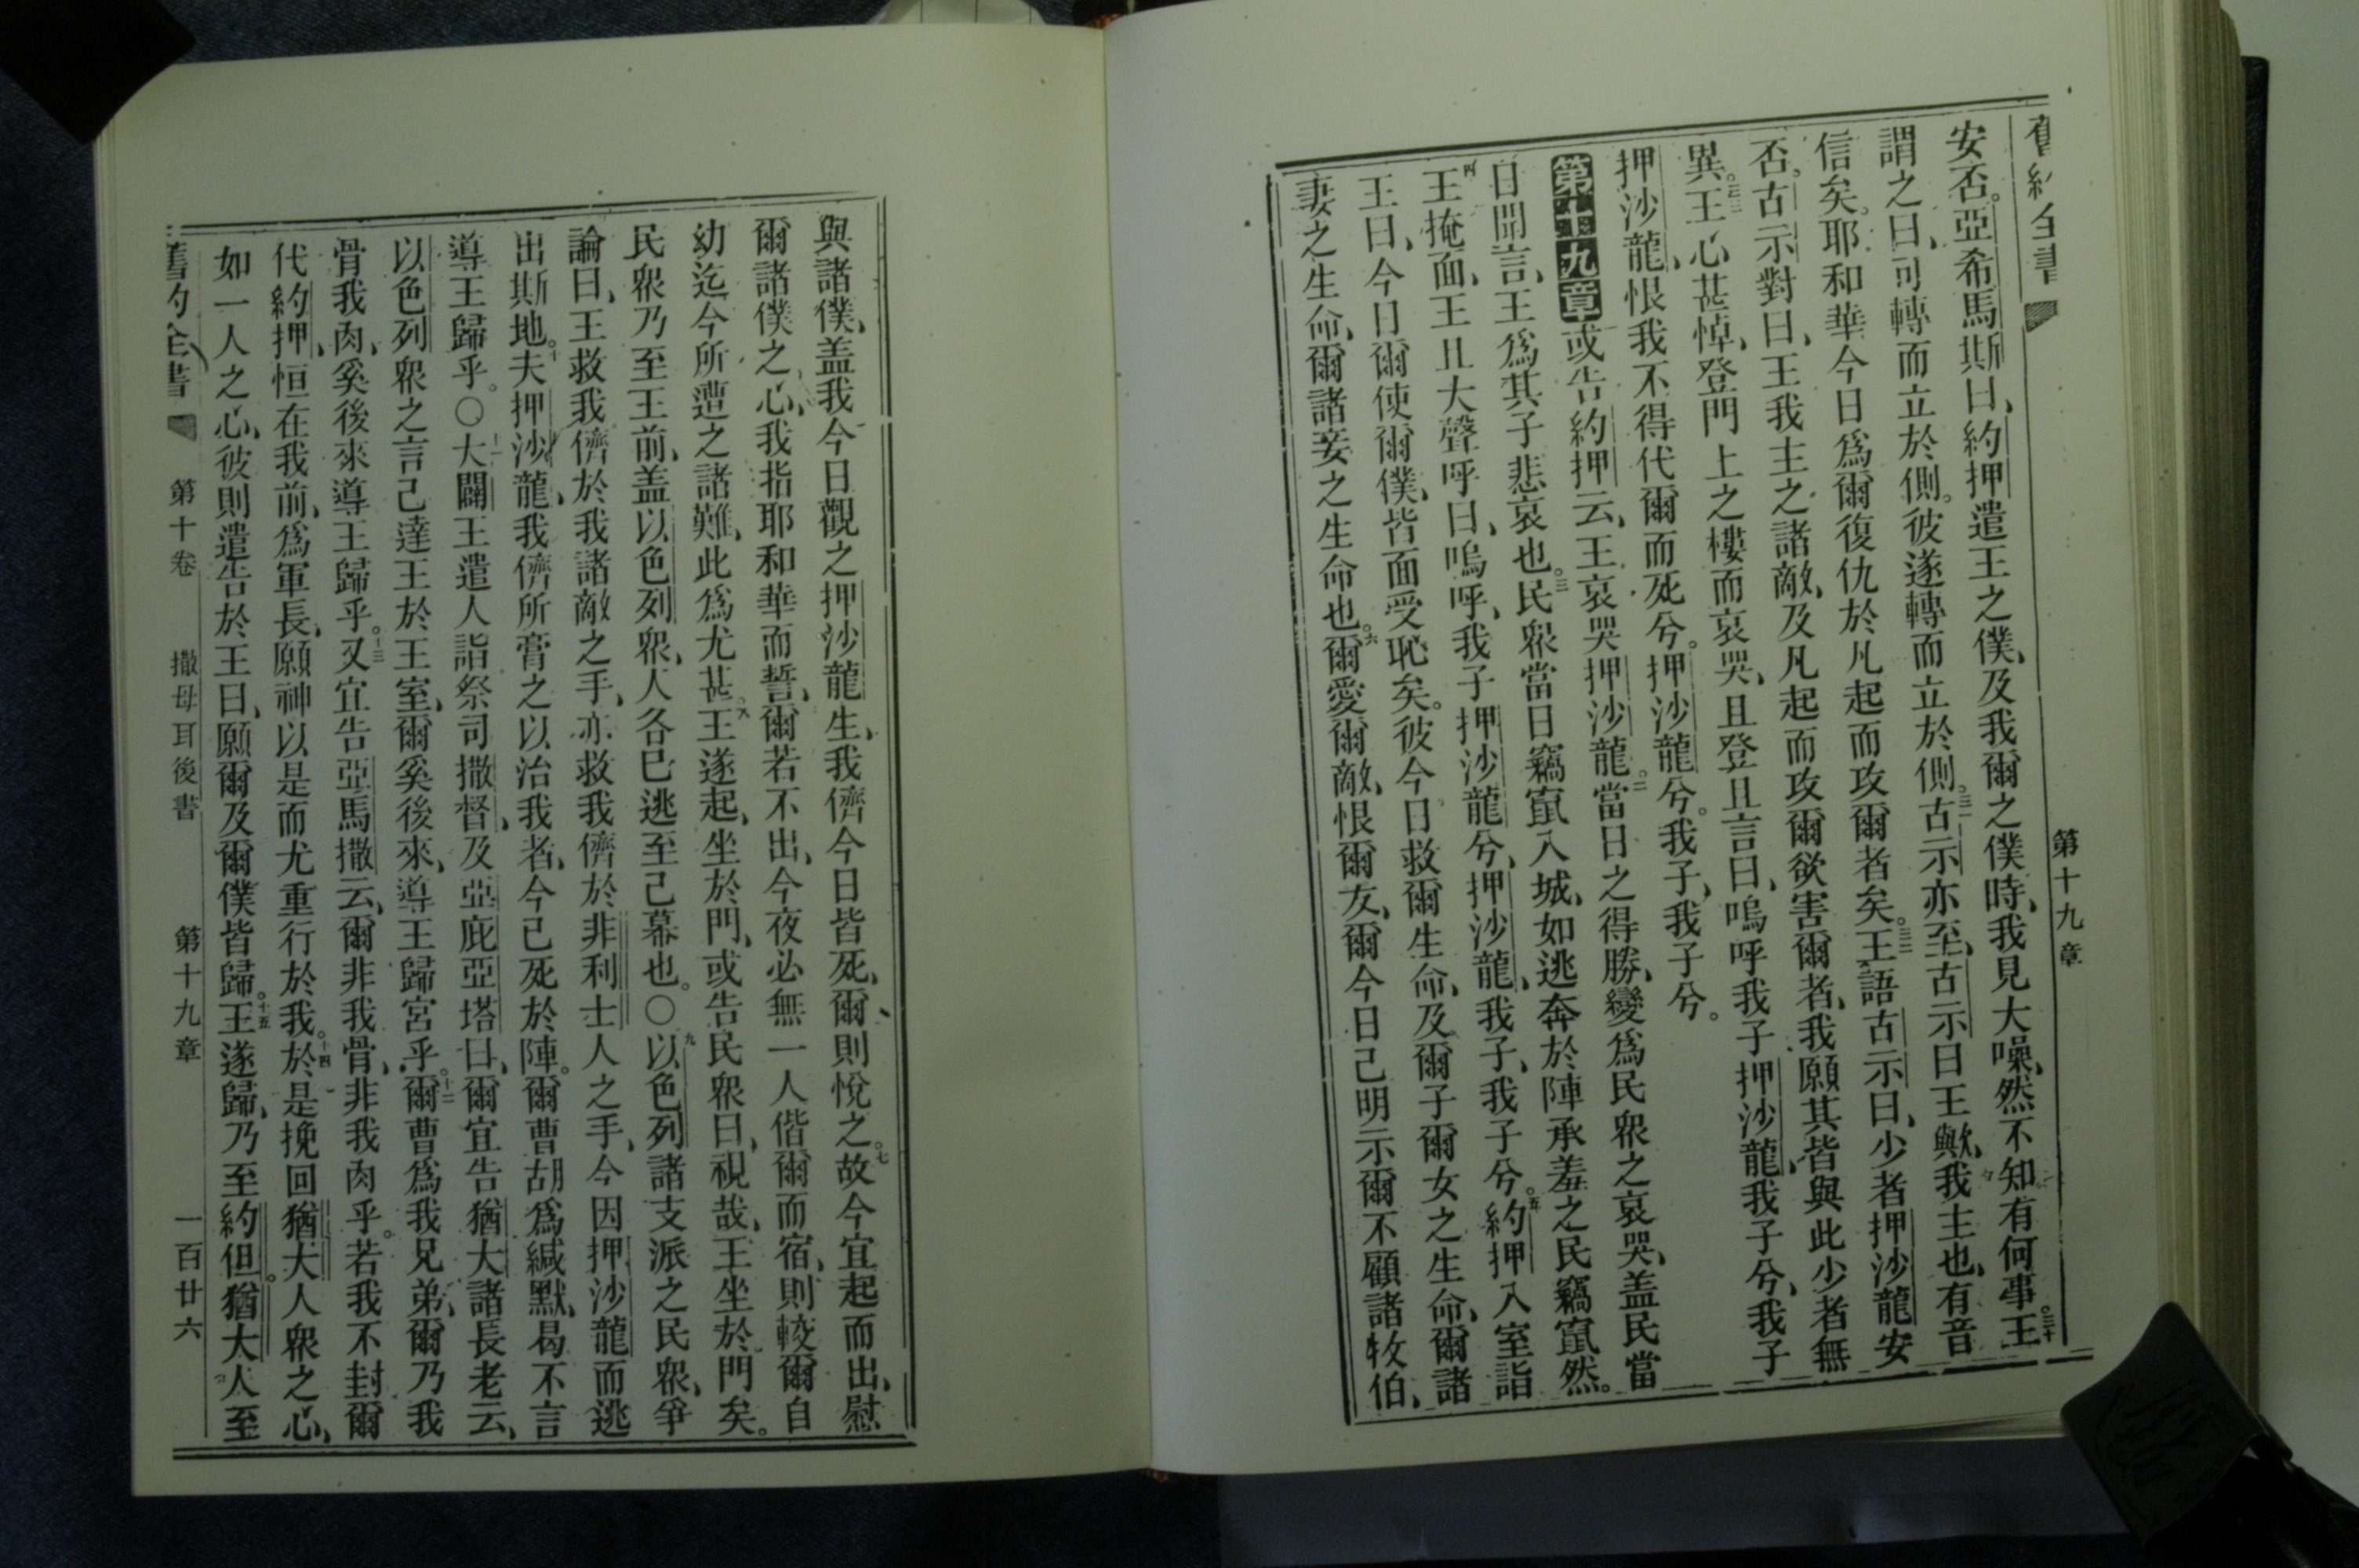 舊約全書
第十九章
安否。亞希馬斯曰、約押遣王之僕、及我爾之僕時、我見大噪、然不知有何事。三十王
謂之曰、可轉而立於側。彼遂轉而立於側。三一古示亦至、古示曰王歟、我主也、有音
信矣。耶和華今日爲爾復仇於凡起而攻爾者矣。三二王語古示曰、少者押沙龍安
否。古示對曰、王我主之諸敵、及凡起而攻爾欲害爾者、我願其皆與此少者無
異。三三王心甚悼、登門上之樓而哀哭、且登且言曰、嗚呼我子押沙龍、我子兮、我子
押沙龍、恨我不得代爾而死兮。押沙龍兮。我子、我子兮。
第十九章或告約押云、王哀哭押沙龍。二當日之得勝、變爲民衆之哀哭、盖民當
日聞言、王爲其子悲哀也。三民衆當日竊竄入城、如逃奔於陣承羞之民竊竄然。
四王掩面、王且大聲呼曰、嗚呼、我子押沙龍兮、押沙龍、我子、我子兮。五約押入室詣
王曰、今日爾使爾僕、皆面受恥矣。彼今日救爾生命、及爾子爾女之生命、爾諸
妻之生命、爾諸妾之生命也。六爾愛爾敵、恨爾友、爾今日己明示爾不顧諸牧伯、
與諸僕、盖我今日觀之押沙龍生、我儕今日皆死、爾則悅之。七故今宜起而出、慰
爾諸僕之心、我指耶和華而誓、爾若不出、今夜必無一人偕爾而宿、則較爾自
幼迄今所遭之諸難、此爲尤甚。八王遂起、坐於門、或告民衆曰、視哉、王坐於門矣。
民衆乃至王前、盖以色列衆、人各已逃至己幕也。○九以色列諸支派之民衆、爭
論曰、王救我儕於我諸敵之手、亦救我儕於非利士人之手、今因押沙龍而逃
出斯地。十夫押沙龍、我儕所膏之以治我者、今己死於陣。爾曹胡爲緘默、曷不言
導王歸乎。○十一大闢王遣人詣祭司撒督、及亞庇亞塔曰、爾宜告猶大諸長老云、
以色列衆之言己達王於王室、爾奚後來、導王歸宮乎。十二爾曹爲我兄弟、爾乃我
骨我肉、奚後來導王歸乎。十三又宜告亞馬撒云、爾非我骨、非我肉乎。若我不封爾
代約押、恒在我前、爲軍長、願神以是而尤重行於我。十四於是挽回猶大人衆之心、
如一人之心、彼則遣告於王曰、願爾及爾僕皆歸。十五王遂歸、乃至約但。猶大人至
舊約全書 第十卷 撒母耳後書 第十九章 一百廿六